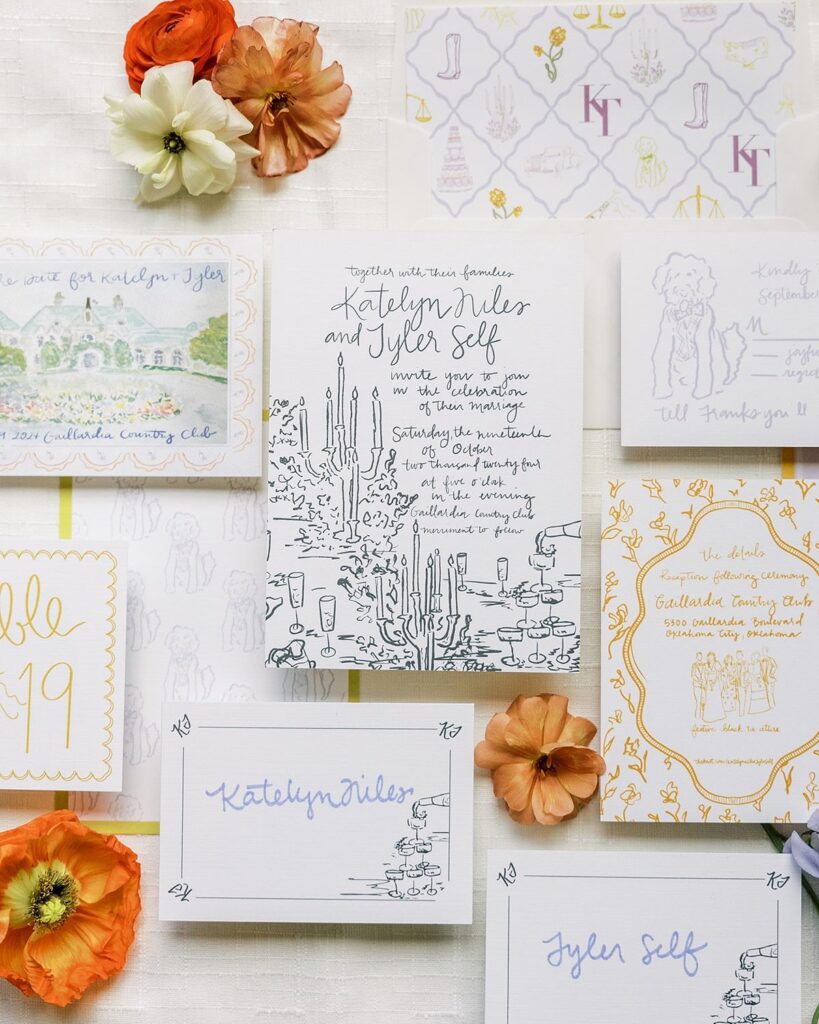 KT
KT
Date for Katelyn + Tyler
2024 Gaillardia Country Club
together with their families
Katelyn Niles
and Tyler Self
invite you to join
in the celebration
of their marriage
Saturday, the nineteenth
of October
two thousand twenty four
at five o'clock
in the evening
Gaillardia Country Club
merriment to follow
Kindly
September
M
joyful
regre
tell Franks you'll
the details
Reception following ceremony
Gaillardia Country Club
5300 Gaillardia Boulevard
Oklahoma City, Oklahoma
festive black tie attire
ble
19
KS
KS
KS
Katelyn Niles
KS
KS
Tyler Self